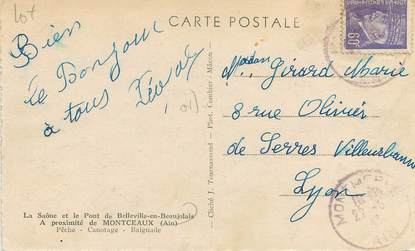 Lot
CARTE POSTALE
Bien
le Bonjour
à tous
Madame Girard Marie
8 rue Olivier
de Serres Villeurbanne
Lyon
La Saône et le Pont de Belleville-en-Beaujolais
A proximité de MONTCEAUX (Ain)
Pêche - Canotage - Baignade
Cliché J. Tournassoud - Phot. Combier Mâcon